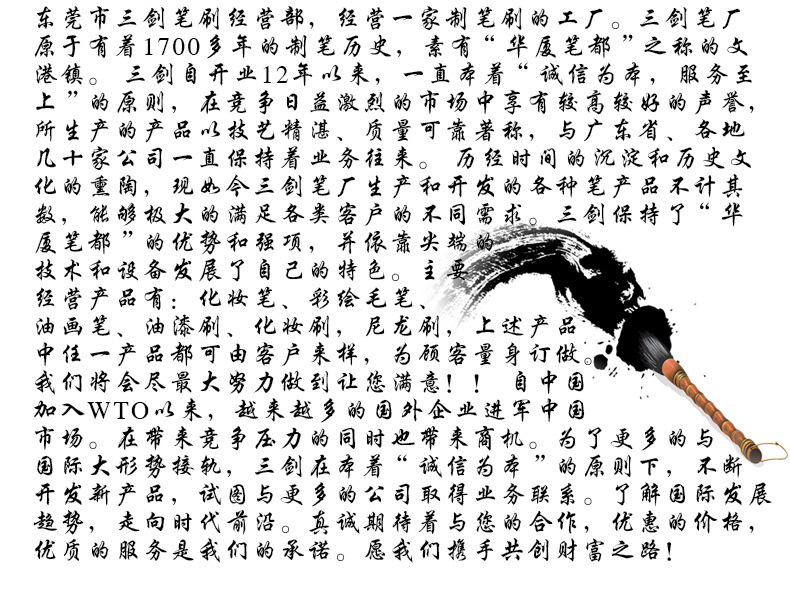 东莞市三剑笔刷经营部，经营一家制笔刷的工厂。三剑笔厂
原于有着1700多年的制笔历史，素有“华厦笔都”之称的文
港镇。三剑自开业12年以来，一直本着“诚信为本，服务至
上”的原则，在竞争日益激烈的市场中享有较高较好的声誉，
所生产的产品以技艺精湛、质量可靠著称，与广东省、各地
几十家公司一直保持着业务往来。 历经时间的沉淀和历史文
化的熏陶，现如今三剑笔厂生产和开发的各种笔产品不计其
数，能够极大的满足各类客户的不同需求。三剑保持了“华
厦笔都”的优势和强项，并依靠尖端的
技术和设备发展了自己的特色。主要
经营产品有：化妆笔、彩绘毛笔、
油画笔、油漆刷、化妆刷，尼龙刷，上述产品
中任一产品都可由客户来样，为顾客量身订做。
我们将会尽最大努力做到让您满意！！ 自中国
加入WTO以来，越来越多的国外企业进军中国
市场。在带来竞争压力的同时也带来商机。为了更多的与
国际大形势接轨，三剑在本着“诚信为本”的原则下，不断
开发新产品，试图与更多的公司取得业务联系。了解国际发展
趋势，走向时代前沿。真诚期待着与您的合作，优惠的价格，
优质的服务是我们的承诺。愿我们携手共创财富之路！